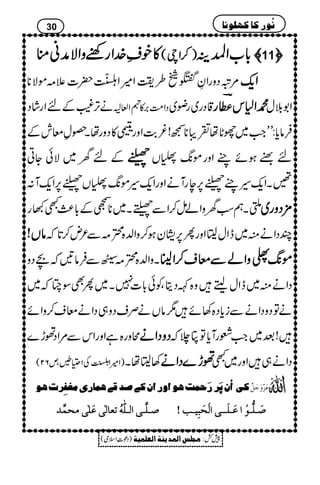 نُور کا کھلونا
30
﴿11﴾ بابُ المدینہ (کراچی) کا خوفِ خدا رکھنے والا مدنی منا
ایک مرتبہ دورانِ گفتگو شیخِ طریقت امیرِ اہلسنّت حضرت علامہ مولانا
ابو بلال محمد الیاس عطار قادری رضوی دامت برکاتہم العالیہ نے ترغیب کے لئے ارشاد
فرمایا: ’’جب میں چھوٹا تھا تقریباً نا سمجھ! غربت اور یتیمی کا دور تھا۔ حصولِ معاش کے
لئے بھنے ہوئے چنے اور مونگ پھلیاں چھیلنے کے لئے گھر میں لائی جاتی
تھیں۔ ایک سیر چنے چھیلنے پر چار آنے اور ایک سیر مونگ پھلیاں چھیلنے پر ایک آنہ
مزدوری ملتی۔ ہم سب گھر والے مل کر اسے چھیلتے۔ میں نا سمجھی کے باعث کبھی کبھار
چند دانے منہ میں ڈال لیتا اور پھر پریشان ہو کر والدہ محترمہ سے عرض کرتا کہ ماں!
مونگ پھلی والے سے معاف کروا لینا۔ والدہ محترمہ سیٹھ سے فرماتیں کہ بچے دو
دانے منہ میں ڈال لیتے ہیں وہ کہہ دیتا، کوئی بات نہیں۔ میں پھر بھی سوچتا کہ میں
نے تو دو دانے سے زیادہ کھائے ہیں مگر ماں نے صرف دو ہی دانے معاف کروائے
ہیں! بعد میں جب شعور آیا تو پتا چلا کہ دو دانے محاورہ ہے اور اس سے مراد تھوڑے
دانے ہی ہیں اور میں کبھی تھوڑے دانے کھا لیتا تھا۔ (امیرِ اہلسنت کی احتیاطیں، ص ۲۶)
اللہ عَزَّوَجَلَّ کی اُن پَر رَحمت ھو اور ان کے صدقے ھماری مغفِرت ھو
صَلُّوا عَلَی الْحَبِیْب ! صلَّی اللہُ تعالٰی عَلٰی محمَّد
پیش کش: مجلس المدینة العلمیة (دعوتِ اسلامی)